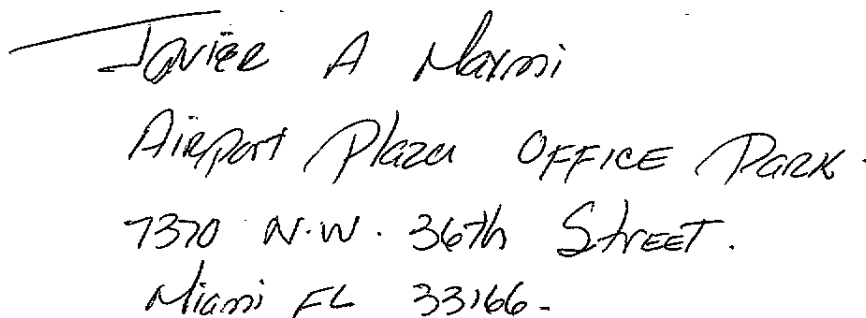 Javier A Marmi
Airport Plaza OFFICE Park.
7370 N.W. 36th STREET.
Miami FL 33166-